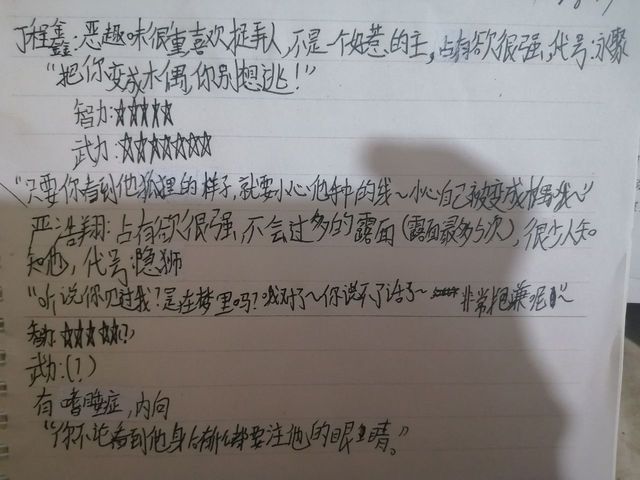 丁程鑫:恶趣味很重喜欢捉弄人,不是一个好惹的主,占有欲很强,代号:永聚
“把你变成木偶,你别想逃!”
智力:☆☆☆☆☆
武力:☆☆☆☆☆☆☆
“只要你看到他狐狸的样子,就要小心他手中的线~小心自己被变成木偶哦~”
严浩翔:占有欲很强,不会过多的露面(露面最多5次),很少人知
知他,代号:隐狮
“听说你见过我?是在梦里吗?哦对了~你说不了话了~ 非常抱歉呢~
智力:☆☆☆☆(?)
武力:(?)
有嗜睡症,内向
“你不论看到他身上有什么都要注他的眼睛。”